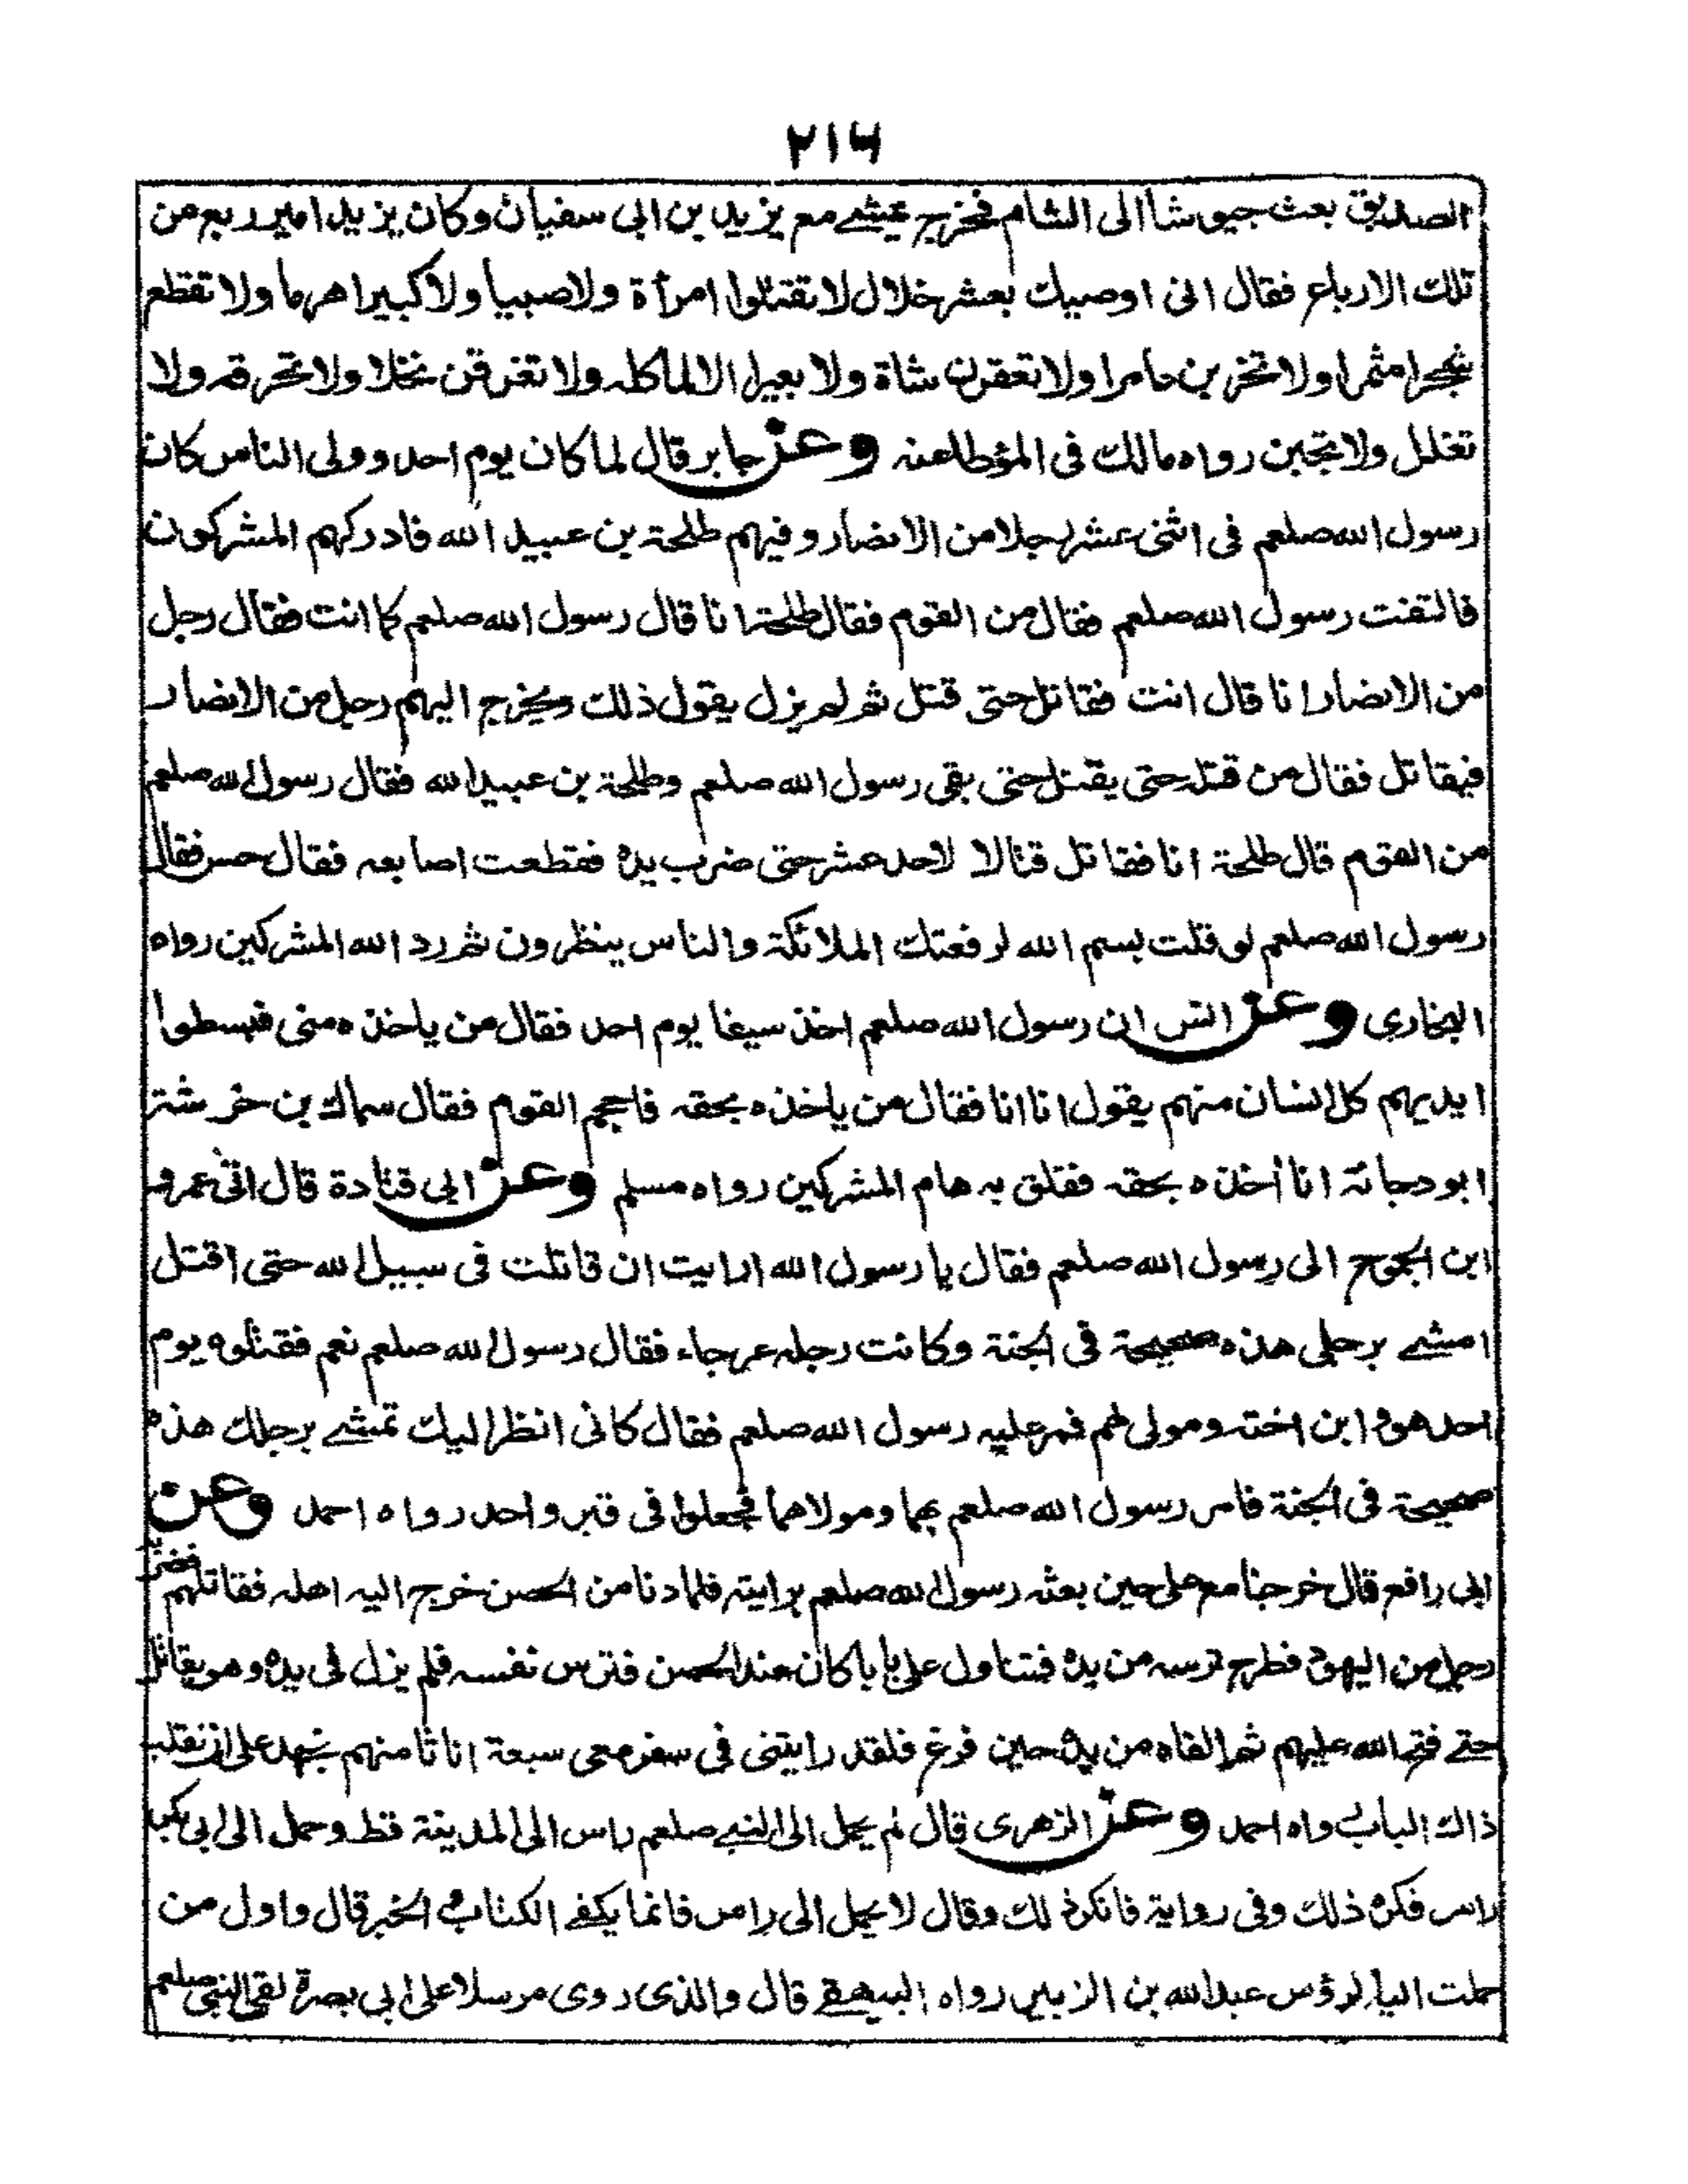 ٢١٦
الصديق بعث جيوشا الى الشام فخرج يمشے مع يزيد بن ابى سفيان وكان يزيد امير ربع من
تلك الارباع فقال انى اوصيك بعشر خلال لا تقتلوا امرأة ولا صبيا ولا كبيرا هرما ولا تقطع
شجرا مثمرا ولا تخربن عامرا ولا تعقرن شاة ولا بعيرا الا لماكله ولا تغرقن نخلا ولا تحرقه ولا
تغلل ولا تجبن رواه مالك فى المؤطا عنه وعن جابر قال لما كان يوم احد وولى الناس كان
رسول الله صلعم فى اثنى عشر رجلا من الانصار وفيهم طلحة بن عبيد الله فادركهم المشركون
فالتفت رسول الله صلعم فقال من القوم فقال طلحة انا قال رسول الله صلعم كما انت فقال رجل
من الانصار انا قال انت فقاتل حتى قتل ثم لم يزل يقول ذلك ويخرج اليهم رجل من الانصار
فيقاتل فقال من قتله حتى يقتل حتى بقى رسول الله صلعم وطلحة بن عبيد الله فقال رسول الله صلعم
من القوم قال طلحة انا فقاتل قتالا لاحد عشر حتى ضرب يده فقطعت اصابعه فقال حس فقال
رسول الله صلعم لو قلت بسم الله لرفعتك الملائكة والناس ينظرون ثم رد الله المشركين رواه
البخارى وعن انس ان رسول الله صلعم اخذ سيفا يوم احد فقال من ياخذه منى فبسطوا
ايديهم كل انسان منهم يقول انا انا فقال من ياخذه بحقه فاحجم القوم فقال سماك بن خرشة
ابو دجانة انا أخذه بحقه ففلق به هام المشركين رواه مسلم وعن ابى قتادة قال اتى عمرو
ابن الجموح الى رسول الله صلعم فقال يا رسول الله ارايت ان قاتلت فى سبيل الله حتى اقتل
امشے برجلى هذه صحيحة فى الجنة وكانت رجله عرجاء فقال رسول الله صلعم نعم فقتلوه يوم
احد هو وابن اخته ومولى لهم فمر عليه رسول الله صلعم فقال كانى انظر اليك تمشے برجلك هذه
صحيحة فى الجنة فامر رسول الله صلعم بهما ومولاهما فجعلوا فى قبر واحد رواه احمد وعن
ابى رافع قال خرجنا مع على حين بعثه رسول الله صلعم برايته فلما دنا من الحصن خرج اليه اهله فقاتلهم فضربه
رجل من اليهود فطرح ترسه من يده فتناول على بابا كان عند الحصن فترس نفسه فلم يزل فى يده وهو يقاتل
حتے فتح الله عليهم ثم القاه من يده حين فرغ فلقد رايتنى فى سفر معى سبعة انا ثامنهم نجهد على ان نقلب
ذاك الباب رواه احمد وعن الزهرى قال لم يحمل الى النبے صلعم راس الى المدينة قط وحمل الى ابى بكر
راس فكره ذلك وفى رواية فانكر ذلك وقال لا يحمل الى راس فانما يكفے الكتاب والخبر قال واول من
حملت اليه الرؤس عبد الله بن الزبير رواه البيهقے قال والذى روى مرسلا على ابى بصرة لقى النبى صلعم